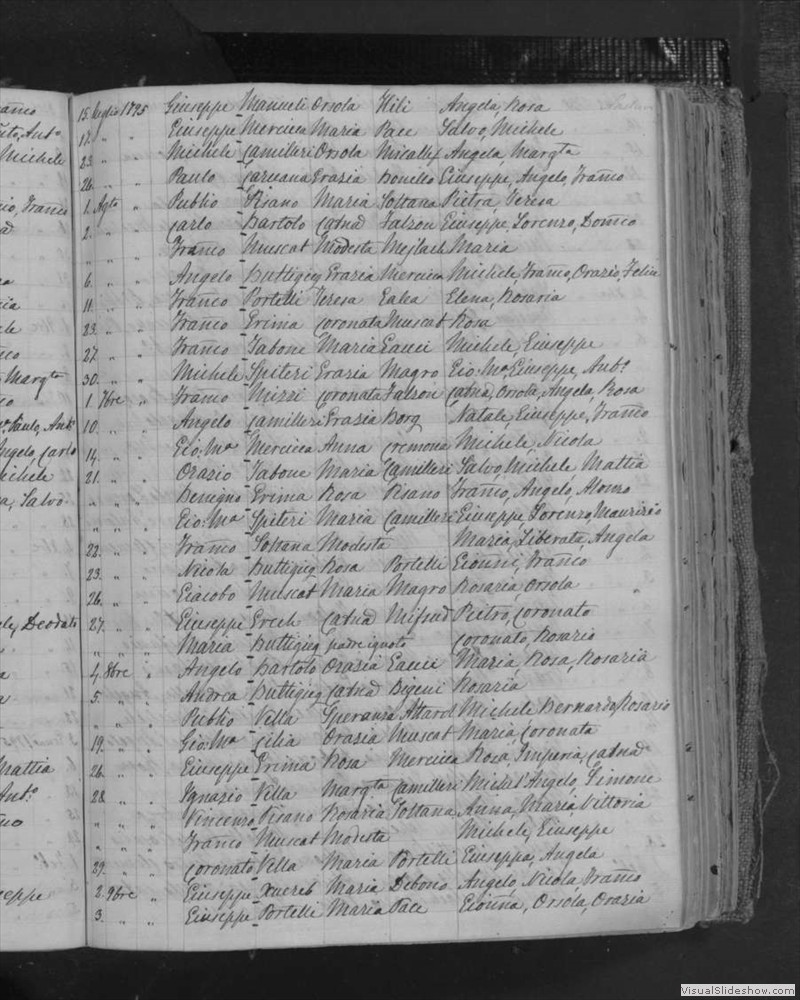 15. Luglio 1895 Giuseppe Manueli Orsola Hili Angela, Rosa
17. " " Giuseppe Mercieca Maria Pace Salvo, Michele
23. " " Michele Camilleri Orsola Micallef Angela, Margta
26. " " Paulo Caruana Grazia Bonello Giuseppe, Angelo, Franco
1. Agto " Publio Pisano Maria Soltana Pietra, Teresa
2. " " Carlo Bartolo Catna Falzon Giuseppe, Lorenzo, Domco
" " " Franco Muscat Modesta Mejlach Maria
6. " " Angelo Buttigieg Grazia Mercieca Michele Franco, Orazio, Felic
11. " " Franco Portelli Teresa Galea Elena, Rosaria
23. " " Franco Grima Coronata Muscat Rosa
27. " " Franco Tabone Maria Gauci Michele, Giuseppe
30. " " Michele Spiteri Grazia Magro Gio: Ma Giuseppe, Anto
1. 7bre " Franco Mizzi Coronata Falzon Catna, Orsola, Angela, Rosa
10. " " Angelo Camilleri Grazia Borg Natale, Giuseppe, Franco
14. " " Gio: Ma Mercieca Anna Cremona Michele, Nicola
21. " " Orazio Tabone Maria Camilleri Salvo, Michele Mattia
" " " Benigno Grima Rosa Pisano Franco, Angelo, Alonso
" " " Gio: Ma Spiteri Maria Camilleri Giuseppe Lorenzo, Maurizio
22. " " Franco Soltana Modesta Maria, Liberata, Angela
23. " " Nicola Buttigieg Rosa Portelli Gionni, Franco
26. " " Giacobo Muscat Maria Magro Rosaria Orsola
27. " " Giuseppe Grech Catna Mifsud Pietro, Coronato
" " " Maria Buttigieg padre ignoto Coronato, Rosario
4. 8bre " Angelo Bartolo Orazia Gauci Maria Rosa, Rosaria
5. " " Andrea Buttigieg Catna Bigeni Rosaria
" " " Publio Vella Speranza Attard Michele Bernardo, Rosario
19. " " Gio: Ma Cilia Orazia Muscat Maria, Coronata
26. " " Giuseppe Grima Rosa Mercieca Rosa, Imperia, Catna
28. " " Ignazio Vella Margta Camilleri Michel'Angelo, Simone
" " " Vincenzo Pisano Rosaria Soltana Anna, Maria, Vittoria
" " " Franco Muscat Modesta Michele, Giuseppe
29. " " Coronato Vella Maria Portelli Giuseppa, Angela
2. 9bre " Giuseppe Xuereb Maria Debono Angelo, Nicola, Franco
3. " " Giuseppe Portelli Maria Pace Gionna, Orsola, Orazia
VisualSlideshow.com